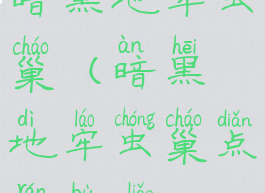 暗黑地牢虫
cháo àn hēi
巢(暗黑
dì láo chóng cháo diǎn
地牢虫巢点